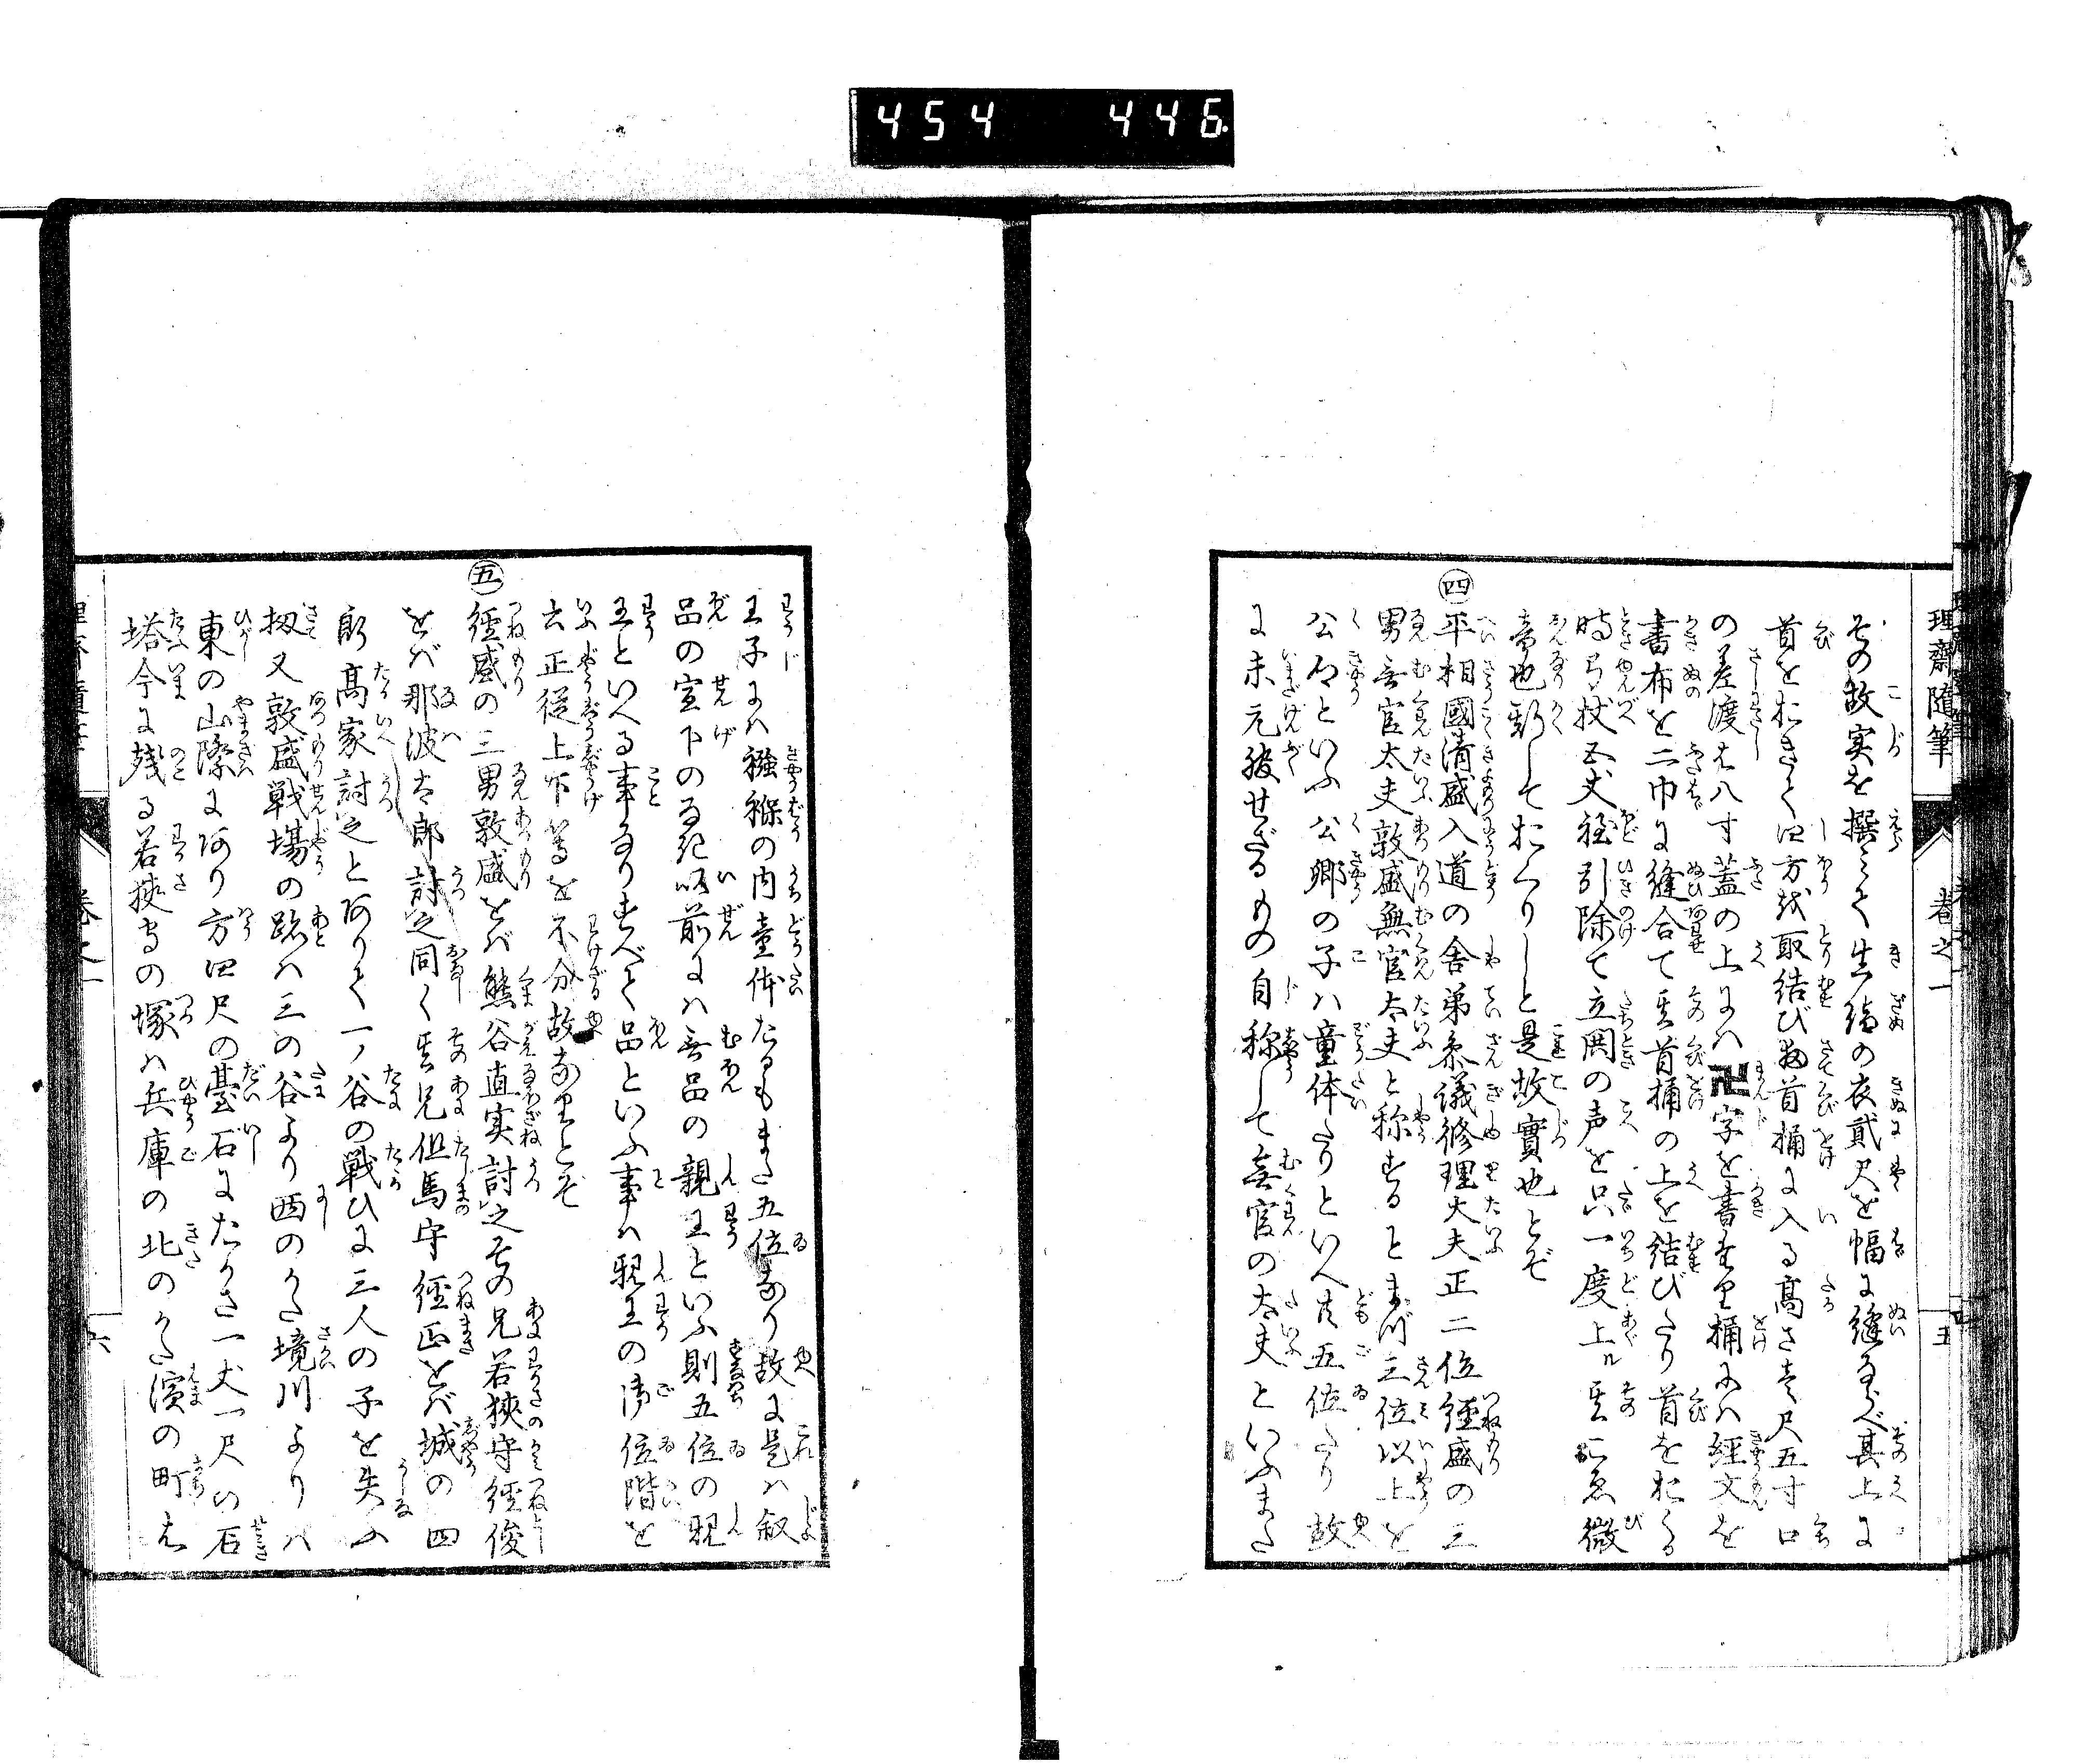 454 446
理齋隨筆 卷之一 五
その故実を撰みて生絹の衣貳尺を幅に縫ならべ其上に
首をおきて四方を取結び扨首桶に入る高さ壱尺五寸口
の差渡し八寸蓋の上には卍字を書なり桶には経文を
書布を二巾に縫合て其首桶の上を結びたり首をおくる
時弓杖五丈程引除て立鬨の声を只一度上ル其こゑ微
音也斯しておくりしと是故實也とぞ
㊃平相國清盛入道の舎弟参議修理大夫正二位經盛の三
男無官太夫敦盛無官太夫と称するとまづ三位以上を
公卿といふ公卿の子は童体たりといへ共五位たり故
に未元服せざるものゝ自称して無官の太夫といふまた
王子には襁褓の内童体たるもまた五位なり故に是は叙
品の宣下のる已前には無品の親王といふ則五位の親
王といへる事なりすべて品といふ事は親王の御位階を
云正従上下等を不分故なりとぞ
㊄經盛の三男敦盛をば熊谷直実討之その兄若狹守經俊
をば那波太郎討之同く其兄但馬守經正をば城の四
郎高家討之と有りて一ノ谷の戦ひに三人の子を失ふ
扨又敦盛戦場の跡は三の谷より西のかた境川よりは
東の山際に有り方四尺の臺石にたかさ一丈一尺の石
塔今に残る若狹守の塚は兵庫の北のかた濱の町は
卷之一 六